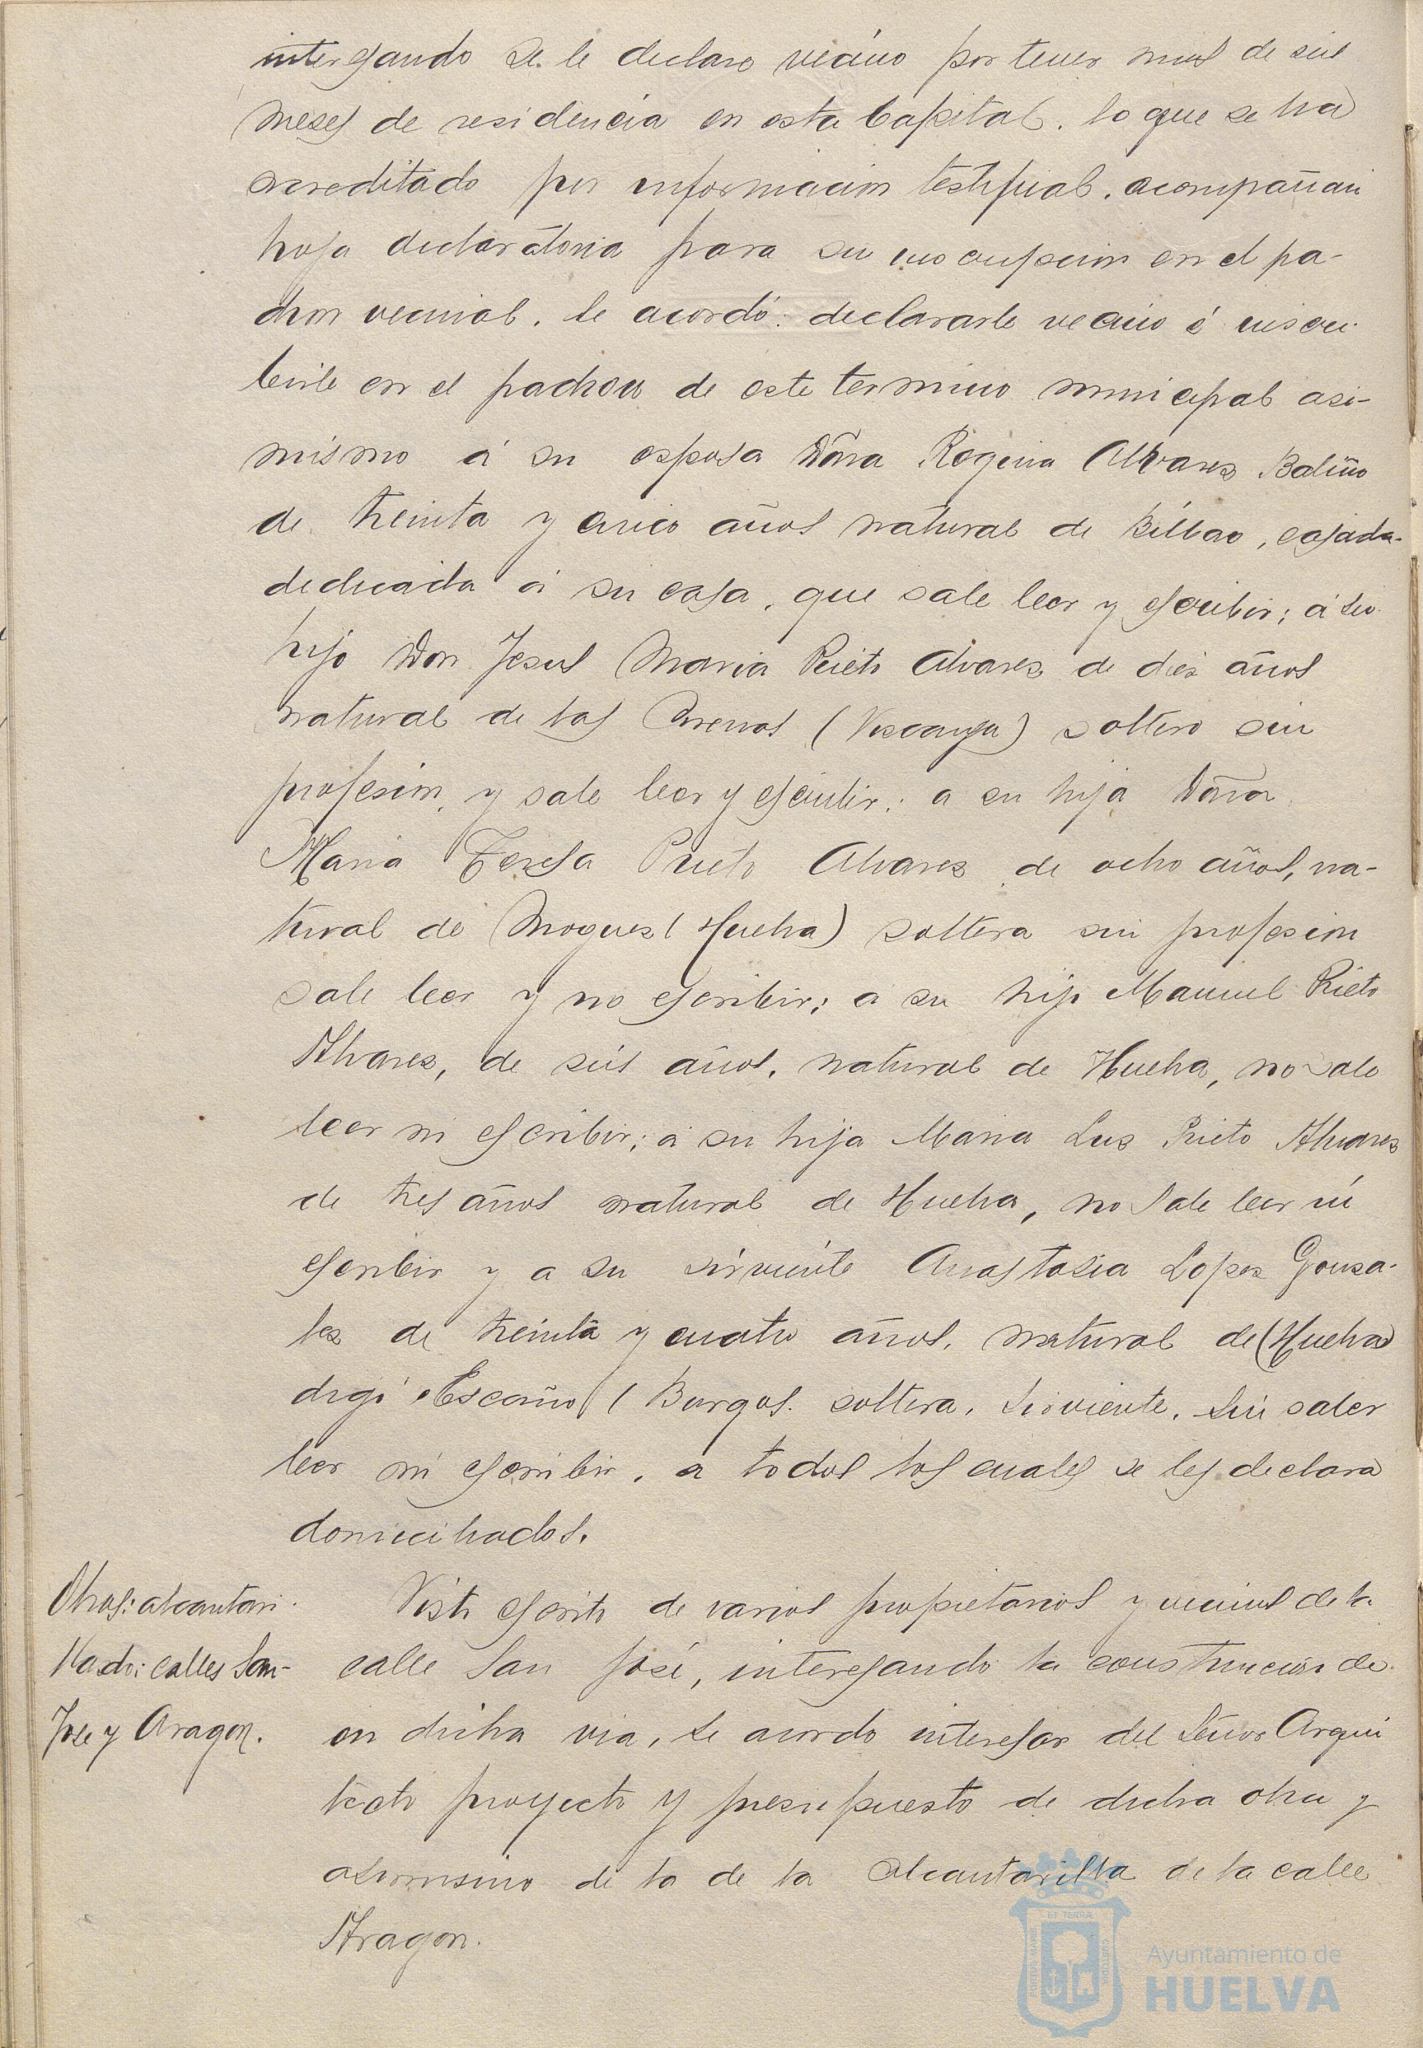 intersando se le declare vecino por tener mas de seis
meses de residencia en esta Capital, lo que se ha
acreditado por informacion testifical, acompañan
hoja declaratoria para su inscripcion en el pa-
dron vecinal. Se acordó: declararle vecino é inscri-
birle en el padron de este termino municipal asi-
mismo á su esposa Doña Rogeria Alvares Baliño
de treinta y cinco años natural de Bilbao, casada-
dedicada á su casa, que sabe leer y escribir; á su
hijo Don Jesus Maria Prieto Alvares de dies años
natural de las Arenas (Viscaya) soltero sin
profesion, y sabe leer y escribir; a su hija Doña
Maria Teresa Prieto Alvares de ocho años, na-
tural de Moguer (Huelva) soltera sin profesion
sabe leer y no escribir; a su hijo Manuel Prieto
Alvares, de seis años, natural de Huelva, no sabe
leer ni escribir; á su hija Maria Lus Prieto Alvares
de tres años natural de Huelva, no sabe leer ni
escribir y a su sirviente Anastasia Lopes Gonsa-
les de treinta y cuatro años, natural de (Huelva)
digo Escaño (Burgos. soltera, sirviente, sin saber
leer ni escribir, a todos los cuales se les declara
domiciliados.
Obras: alcantari-
llado: calles San-
Jose y Aragon.
Visto escrito de varios propietarios y vecinos de la
calle San José, interesando la construccion de
en dicha via, se acordo interesar del Señor Arqui
tecto proyecto y presupuesto de dicha obra y
asimismo de la de la alcantarilla de la calle
Aragon.
Ayuntamiento de
HUELVA